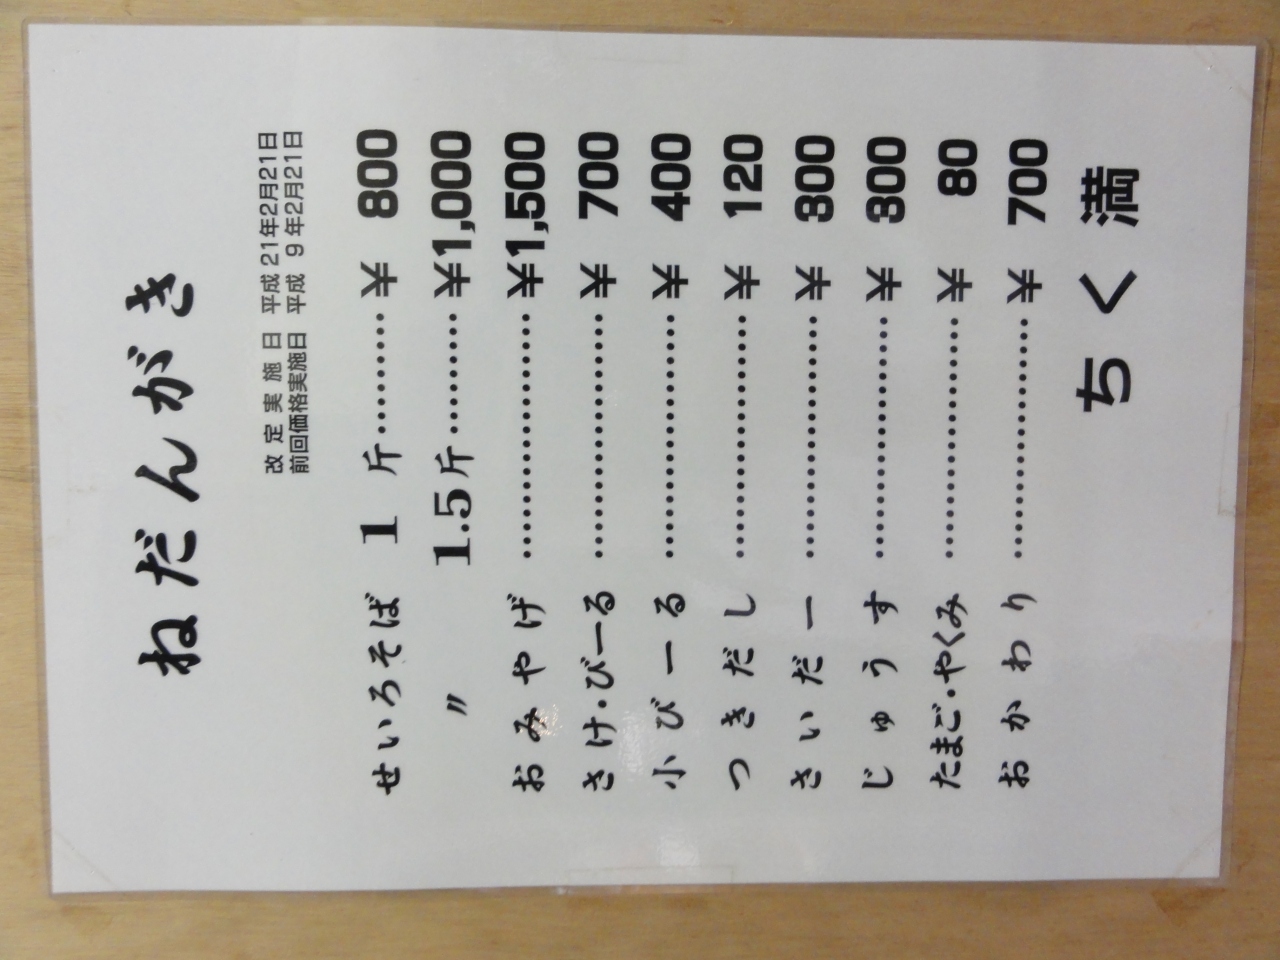 ねだんがき
改定実施日 平成21年2月21日
前回価格実施日 平成 9年2月21日
せいろそば 1 斤………¥ 800
〃 1.5斤………¥1,000
おみやげ………………¥1,500
さけ・びーる………………¥ 700
小びーる………………¥ 400
つきだし………………¥ 120
さいだー………………¥ 300
じゅうす………………¥ 300
たまご・やくみ………………¥ 80
おかわり………………¥ 700
ちく満